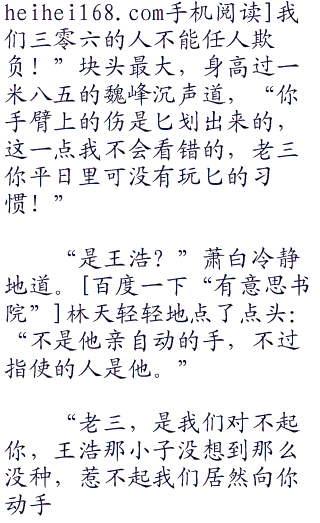 heihei168.com手机阅读]我
们三零六的人不能任人欺
负！”块头最大，身高过一
米八五的魏峰沉声道，“你
手臂上的伤是匕划出来的，
这一点我不会看错的，老三
你平日里可没有玩匕的习
惯！”
“是王浩？”萧白冷静
地道。[百度一下“有意思书
院”]林天轻轻地点了点头：
“不是他亲自动的手，不过
指使的人是他。”
“老三，是我们对不起
你，王浩那小子没想到那么
没种，惹不起我们居然向你
动手